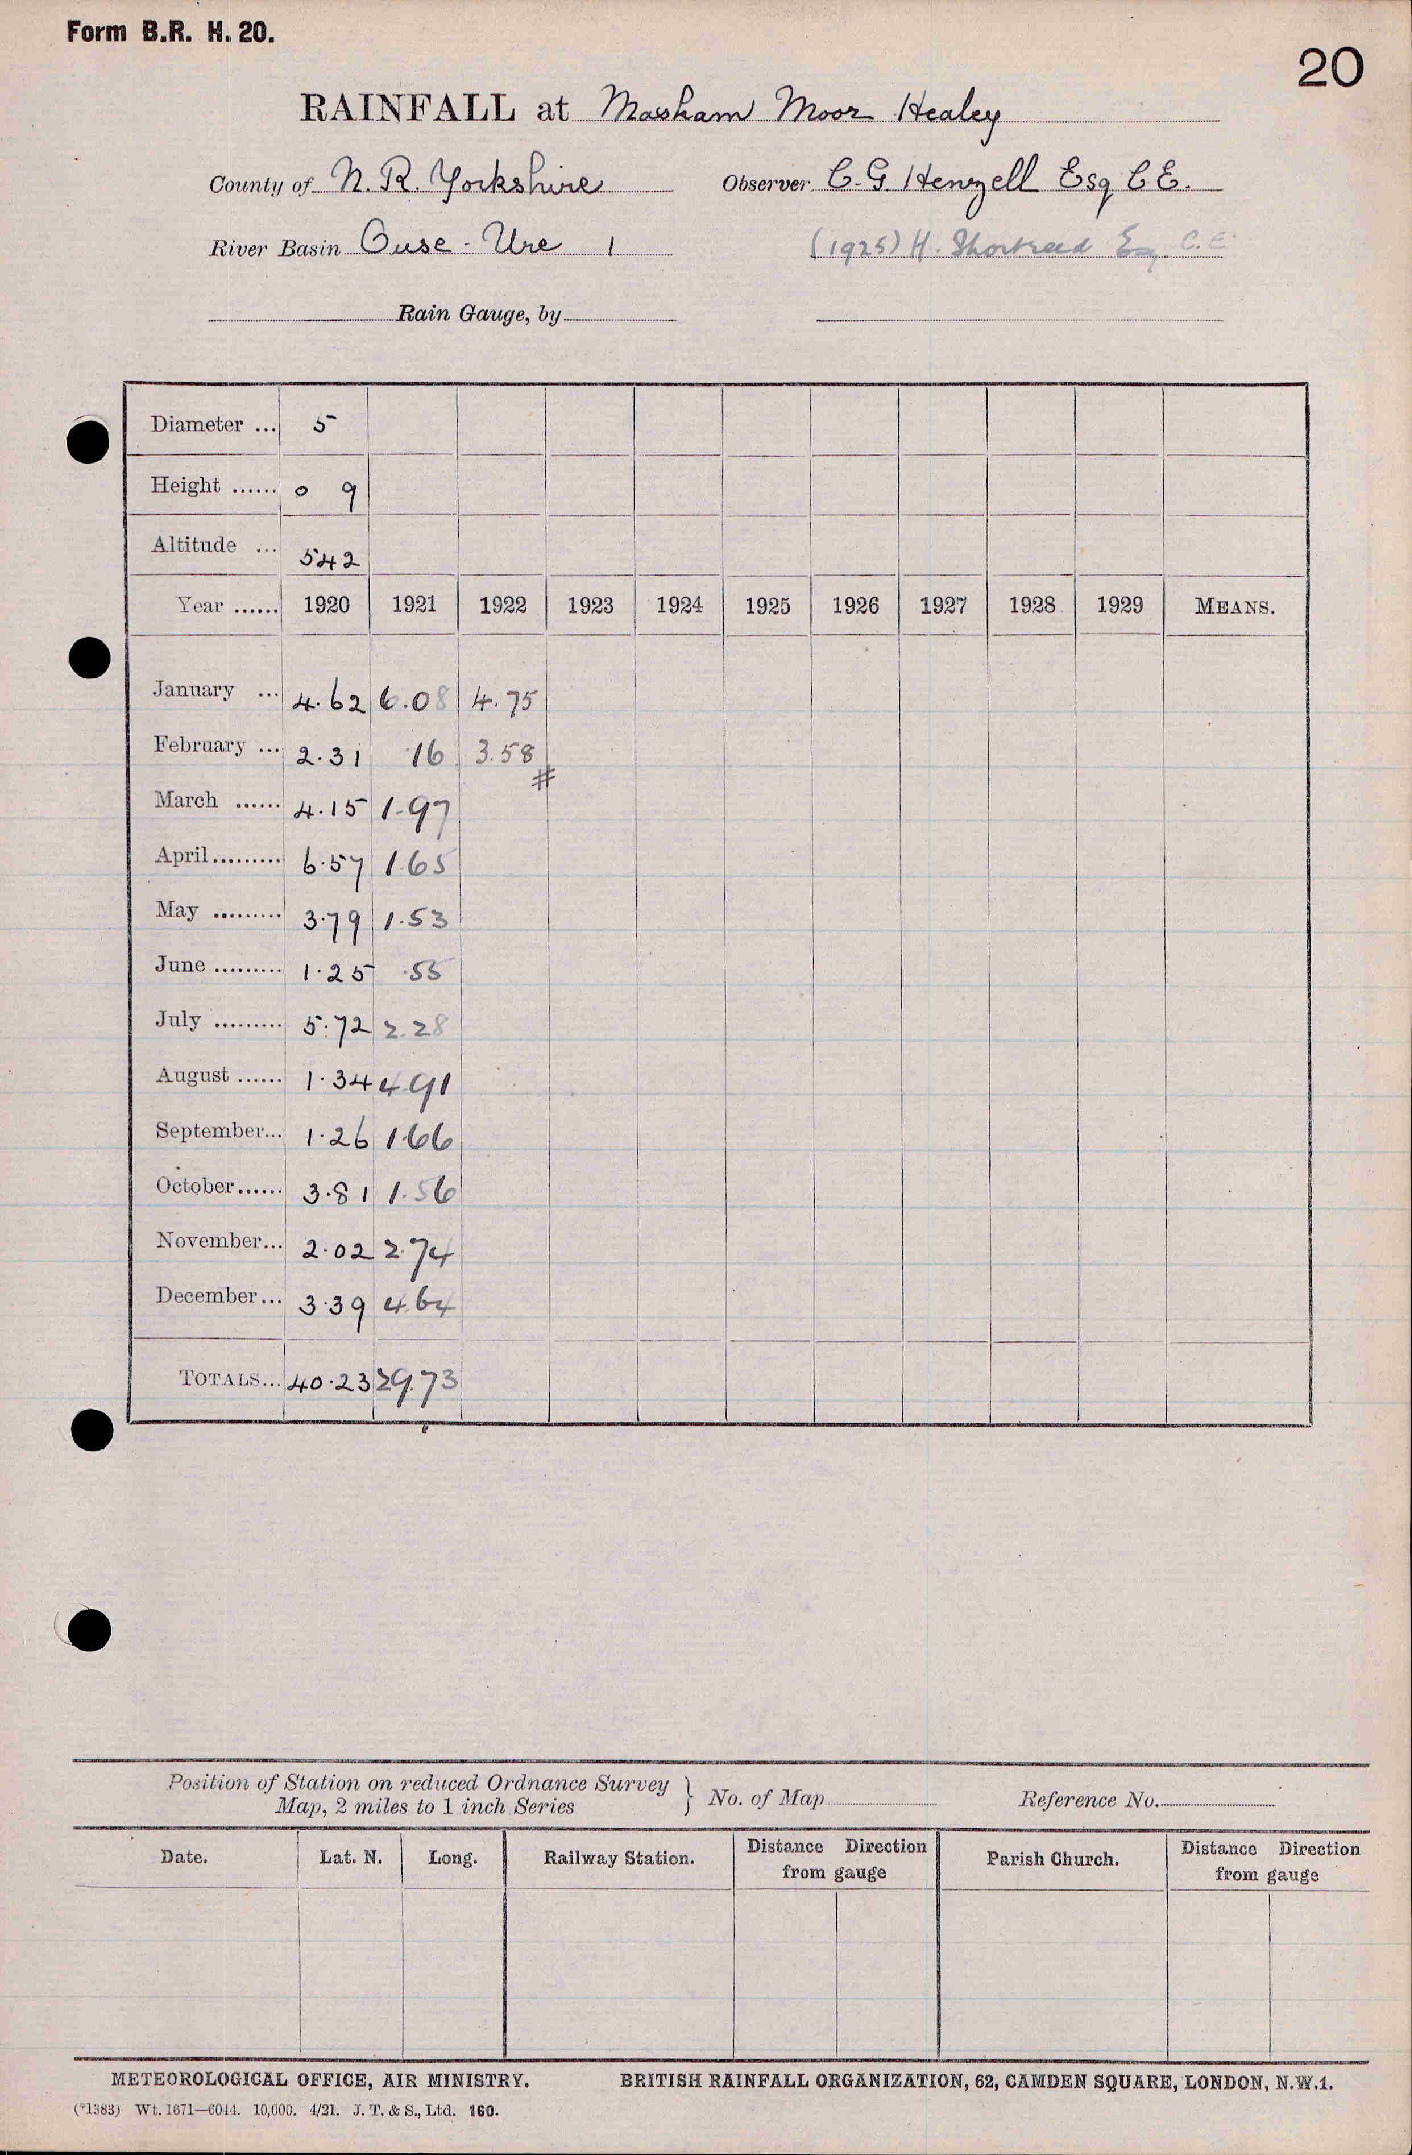 Form B.R. H. 20.
20
RAINFALL at Masham Moor Healey
County of N. R. Yorkshire Observer C. G. Henzell Esq C E.
River Basin Ouse - Ure 1 (1925) H. Shortreed Esq. C.E.
Rain Gauge, by
Diameter ... 5
Height ...... 0 9
Altitude ... 542
Year ...... 1920 1921 1922 1923 1924 1925 1926 1927 1928 1929 MEANS.
January ... 4.62 6.08 4.75
February ... 2.31 .16 3.58 #
March ...... 4.15 1.97
April ......... 6.57 1.65
May ......... 3.79 1.53
June ......... 1.25 .55
July ......... 5.72 2.28
August ...... 1.34 4.91
September... 1.26 1.66
October...... 3.81 1.56
November... 2.02 2.74
December... 3.39 4.64
TOTALS... 40.23 29.73
Position of Station on reduced Ordnance Survey
Map, 2 miles to 1 inch Series } No. of Map Reference No.
Date. Lat. N. Long. Railway Station. Distance Direction from gauge Parish Church. Distance Direction from gauge
METEOROLOGICAL OFFICE, AIR MINISTRY. BRITISH RAINFALL ORGANIZATION, 62, CAMDEN SQUARE, LONDON, N.W.1.
(*1383) Wt. 1671—6044. 10,000. 4/21. J. T. & S., Ltd. 160.